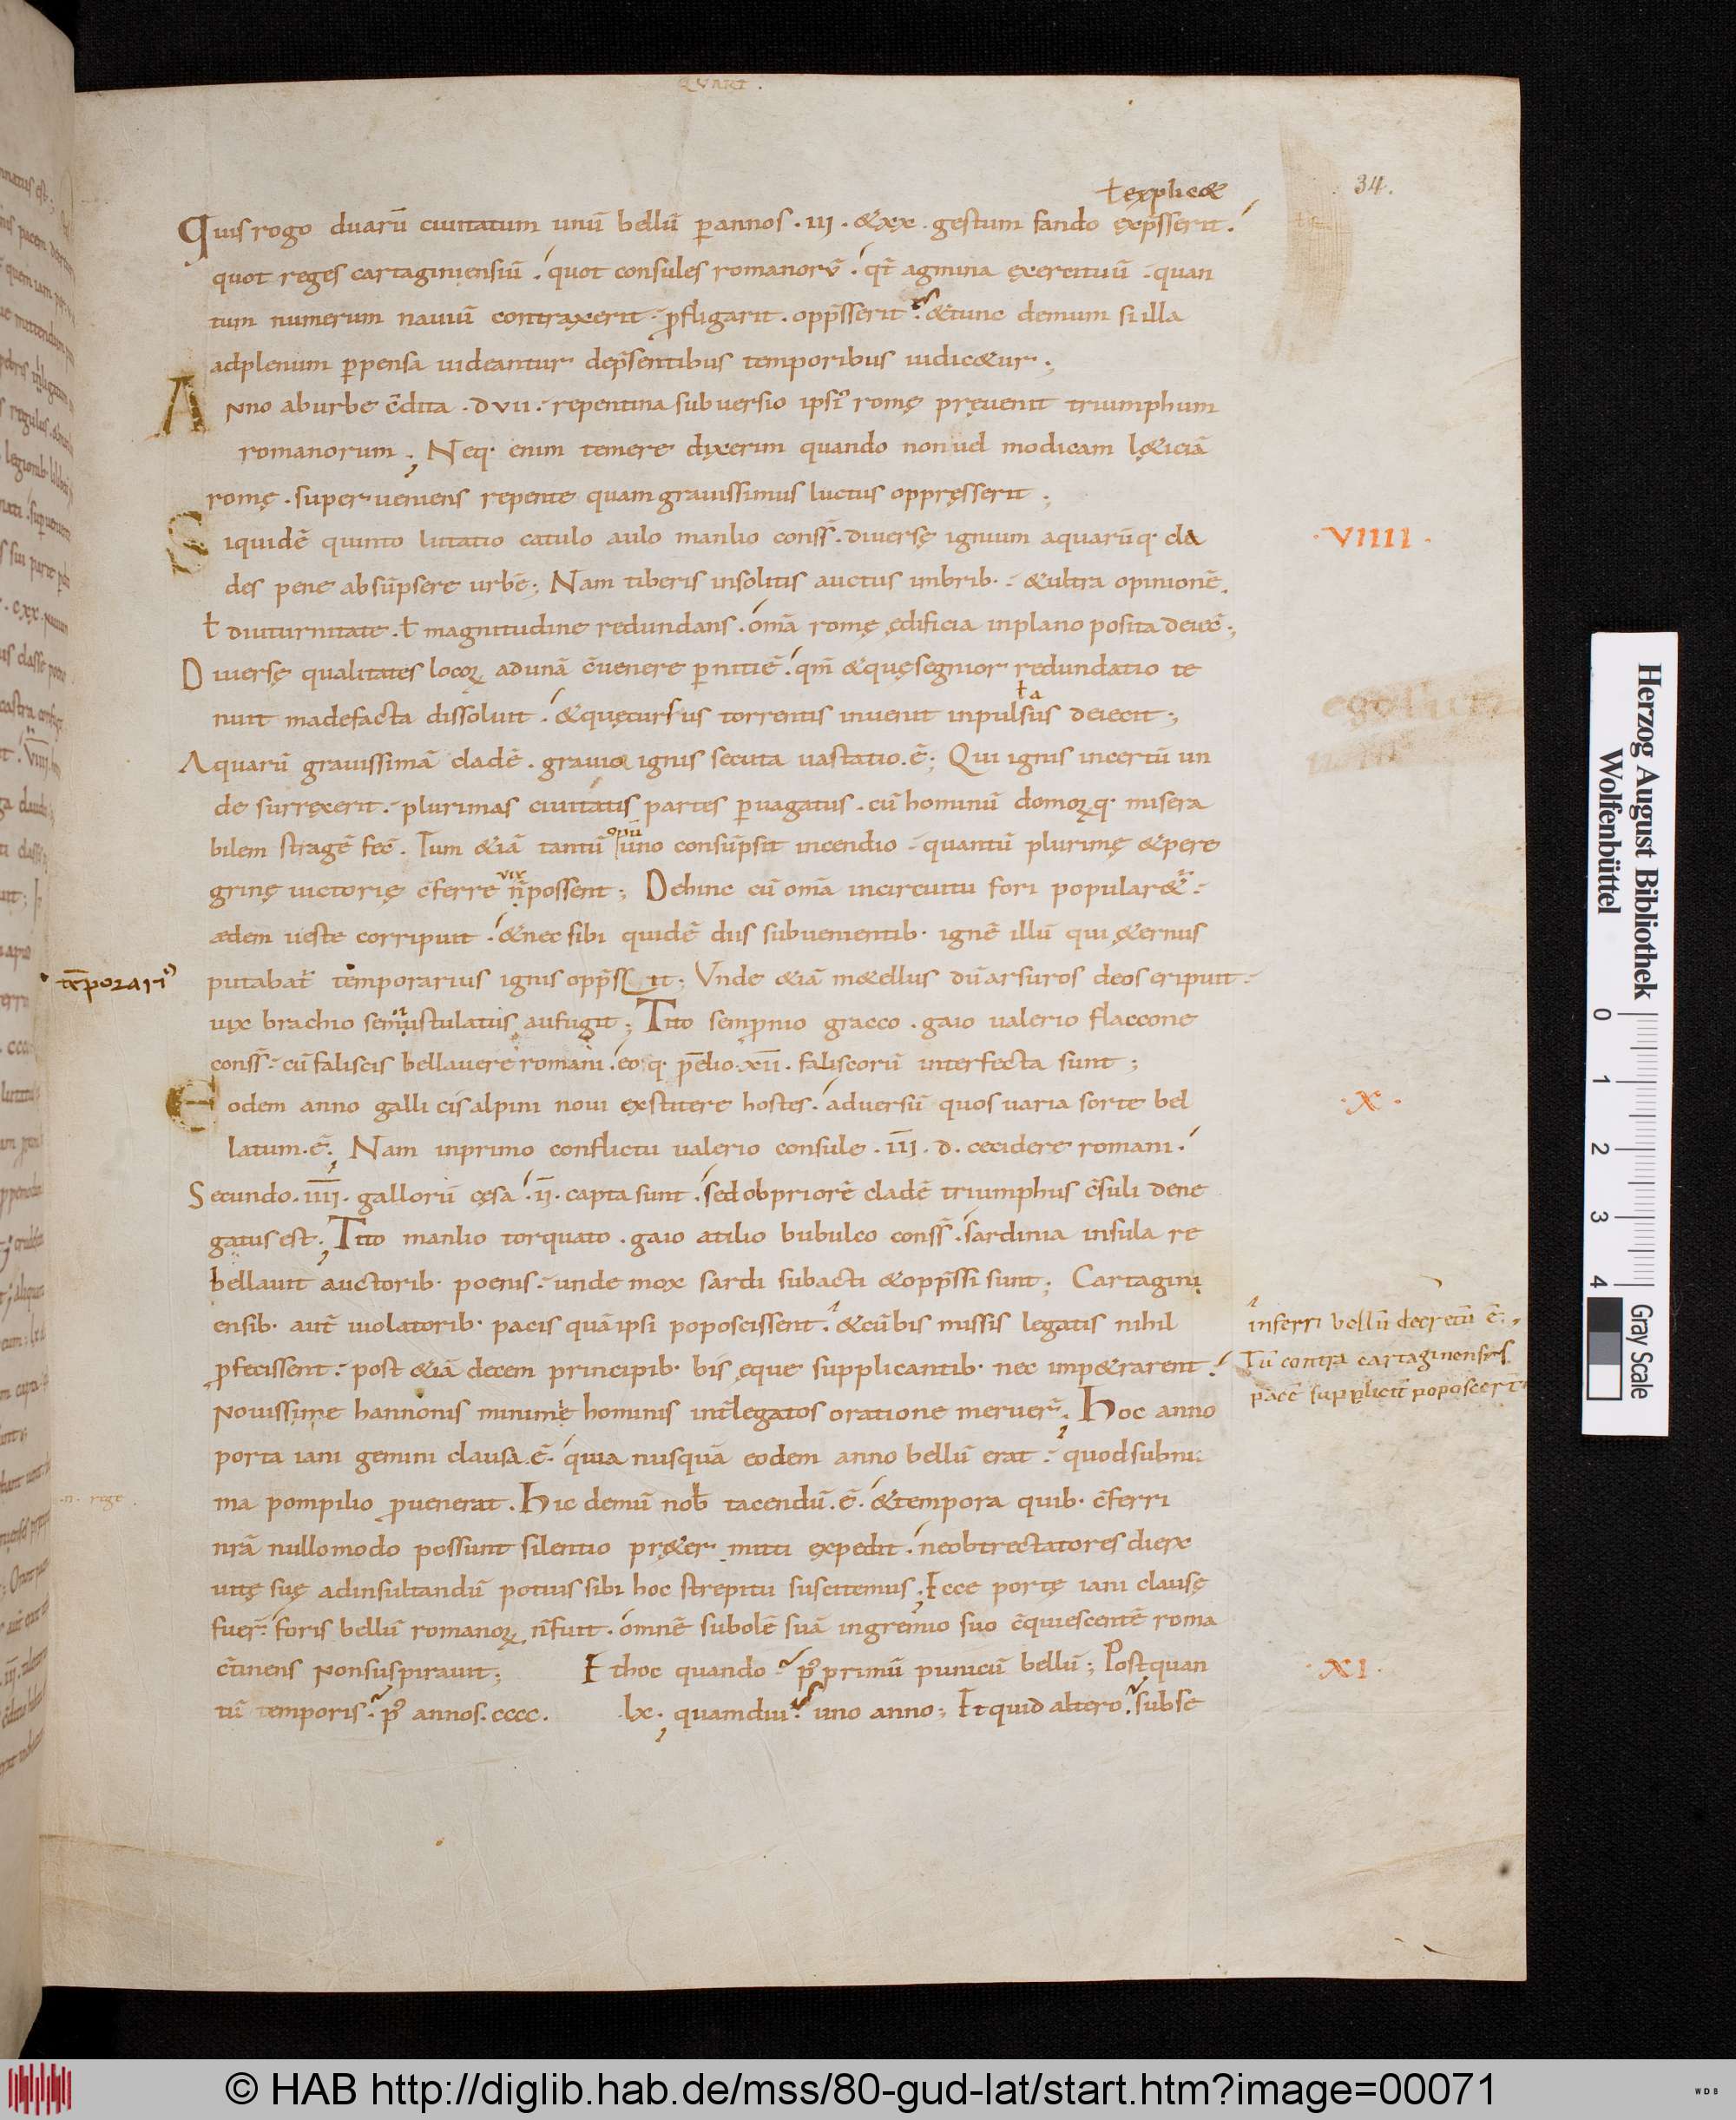 34.
ł explic&
Quis rogo duarū ciuitatum unū bellū ꝑ annos . III . &xx . gestum fando exp̄sserit .
quot reges cartaginiensiū . quot consules romanorū . qt̄ agmina exercituū . quan
tum numerum nauiū contraxerit . ꝓfligarit . opp̄sserit . &tunc demum si illa
adplenum ꝑpensa uideantur dep̄sentibus temporibus iudic&ur ;
Anno aburbe c̄dita . dvii . repentina subuersio ipsi' romę pręuenit triumphum
romanorum ; Neq· enim temere dixerim quando non uel modicam l&iciā
romę . superueniens repente quam grauissimus luctus oppręsserit ;
Siquidē quinto lutatio catulo aulo manlio conss̄ . diuersę ignium aquarūq· cla
des pene absūpsere urbē ; Nam tiberis insolitis auctus imbrib· &ultra opinionē .
ł diuturnitate . ł magnitudine redundans . om̄a romę ędificia inplano posita deiec̄ ;
Diuersę qualitates locoꝝ adunā c̄uenere ꝑnitiē . qm̄ &quę segnior redundatio te
ł a
nuit madefacta dissoluit . &quę cursus torrentis inuenit inpulsus deiecit ;
Aquarū grauissimā cladē . grauior ignis secuta uastatio . ē ; Qui ignis incertū un
de surrexerit . plurimas ciuitatis partes ꝑuagatus . cū hominū domoꝝq· misera
opū
bilem stragē fec̄ . Tum &iā tantū uno consūpsit incendio . quantū plurimę &pere
vix
grinę uictorię c̄ferre n̄ possent ; Dehinc cū om̄a incircuitu fori popular& .
ædem ueste corripuit . &nec sibi quidē diis subuenientib· ignē illū qui &ernus
tēporari'
putabat̄ temporarius ignis opp̄ssit ; Vnde &iā m&ellus dū arsuros deos eripuit
uix brachio semiustulatus aufugit ; Tito sempronio gracco . gaio ualerio flaccone
conss̄ . cū faliscis bellauere romani . eoq· p̄elio . xii . faliscorū interfecta sunt ;
Eodem anno galli cisalpini noui exstitere hostes . aduersū quos uaria sorte bel
latum . ē ; Nam inprimo conflictu ualerio consule . III . d . cecidere romani .
Secundo . IIII . gallorū cęsa . II . capta sunt . sed ob priorē cladē triumphus c̄suli dene
gatus est ; Tito manlio torquato . gaio atilio bubulco conss̄ . sardinia insula re
bellauit auctorib· poenis . unde mox sardi subacti &opp̄ssi sunt ; Cartagini
ensib· aut̄ uiolatorib· pacis quā ipsi poposcissent . &cū bis missis legatis nihil
inferri bellū decretū ē .
Tū contra cartaginenses
pacē supplicit̄ poposcer̄t
ꝓfecissent . post &iā decem principib· bis ęque supplicantib· nec imp&rarent .
Nouissime hannonis minimę hominis int̄ legatos oratione meruer̄ ; hoc anno
porta iani gemini clausa . ē . quia nusquā eodem anno bellū erat . quod sub nu
ma pompilio ꝓuenerat . hic demū nob̄ tacendū . ē . &tempora quib· c̄ferri
nr̄a nullomodo possunt silentio pręter mitti expedit . neobtrectatores dieꝝ
uitę suę adinsultandū potius sibi hoc strepitu suscitemus ; Ecce portę iani clausę
fuer̄ . foris bellū romanoꝝ n̄ fuit . omnē subolē suā ingremio suo c̄quiescentē roma
c̄tinens nonsuspirauit ; Ethoc quando . p' primū punicū bellū ; Post quan
tū temporis . p' annos . cccc . lx . quamdiu . uno anno ; Etquid altero . subse
·VIIII·
·X·
·XI·
Herzog August Bibliothek
Wolfenbüttel
0 1 2 3 4
Gray Scale
© HAB http://diglib.hab.de/mss/80-gud-lat/start.htm?image=00071
WDB